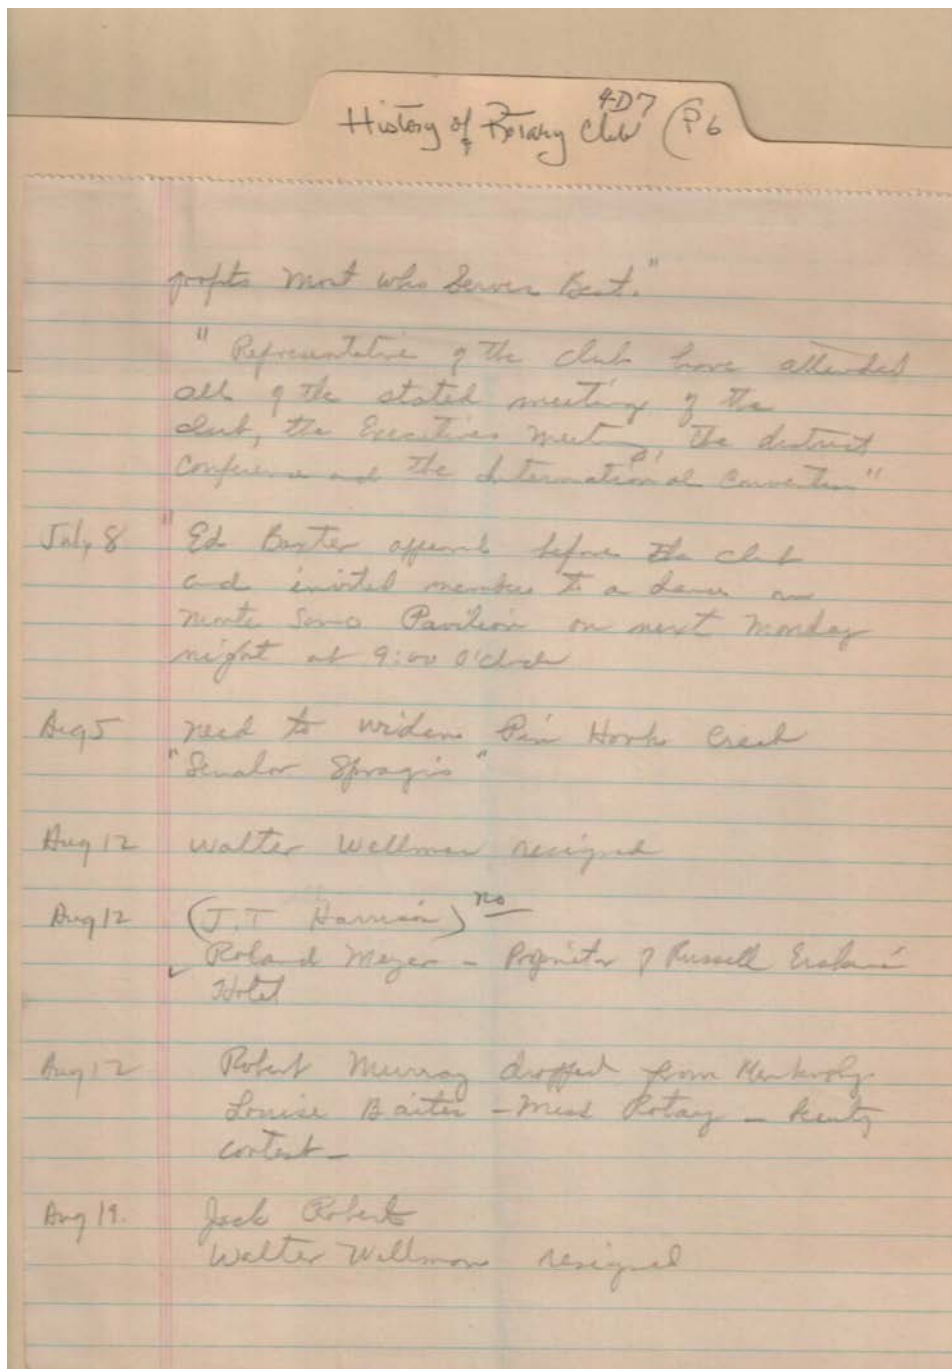 4-D7
History of Rotary Club (P6
profits most who Serves Best."
"Representative of the club have attended
all of the stated meetings of the
club, the Executives Meeting, the district
Conference and the International Convention"
July 8 "Ed Baxter appeared before the club
and invited members to a dance on
Monte Sano Pavilion on next Monday
night at 9:00 O'clock
Aug 5 need to widen Pin Hook Creek
"Senator Spragins"
Aug 12 Walter Wellman resigned
Aug 12 (J.T Harrison) no
Roland Meyer - Proprietor of Russell Erskine
Hotel
Aug 12 Robert Murray dropped from Membership
Louise Baiter - Miss Rotary - beauty
contest -
Aug 19. Jack Roberts
Walter Wellman resigned